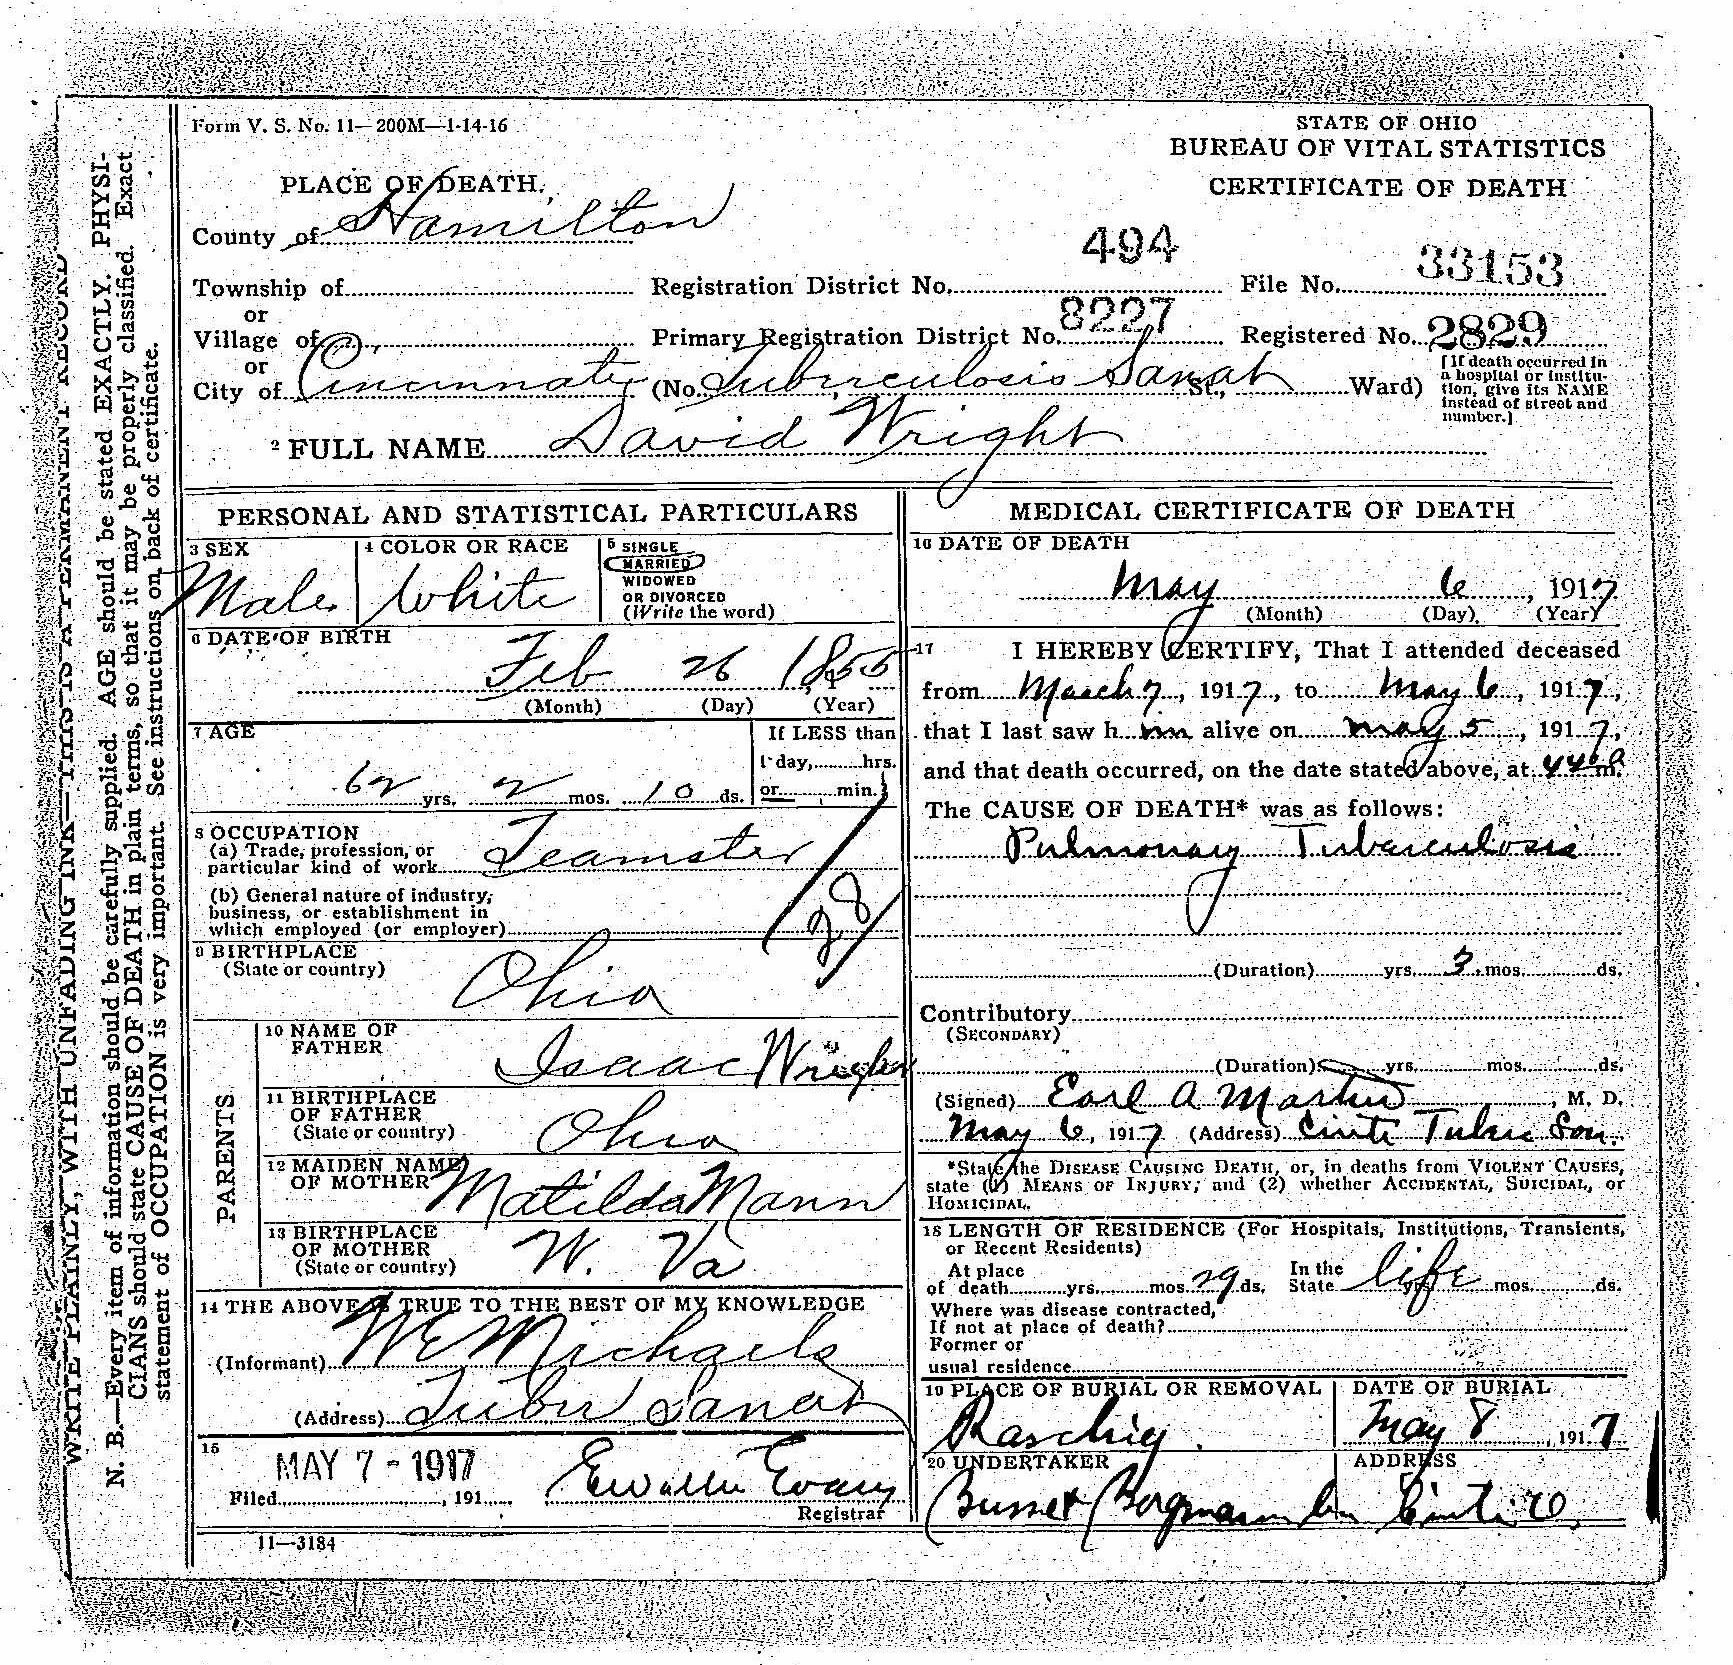 Form V. S. No. 11—200M—1-14-16
STATE OF OHIO
BUREAU OF VITAL STATISTICS
CERTIFICATE OF DEATH
PLACE OF DEATH.
County of Hamilton
Township of
Registration District No. 494
File No. 33153
or
Village of
Primary Registration District No. 8227
Registered No. 2829
or
City of Cincinnati (No. Tuberculosis Sanat St., Ward)
[If death occurred in
a hospital or institu-
tion, give its NAME
instead of street and
number.]
2 FULL NAME David Wright
PERSONAL AND STATISTICAL PARTICULARS
3 SEX
Male
4 COLOR OR RACE
White
5 SINGLE
MARRIED
WIDOWED
OR DIVORCED
(Write the word)
6 DATE OF BIRTH
Feb 26 1855
(Month) (Day) (Year)
7 AGE
62 yrs. 2 mos. 10 ds.
If LESS than
1 day, hrs.
or min.
8 OCCUPATION
(a) Trade, profession, or
particular kind of work Teamster
(b) General nature of industry,
business, or establishment in
which employed (or employer)
28
9 BIRTHPLACE
(State or country)
Ohio
PARENTS
10 NAME OF
FATHER
Isaac Wright
11 BIRTHPLACE
OF FATHER
(State or country)
Ohio
12 MAIDEN NAME
OF MOTHER
Matilda Mann
13 BIRTHPLACE
OF MOTHER
(State or country)
W. Va
14 THE ABOVE IS TRUE TO THE BEST OF MY KNOWLEDGE
(Informant) W E Michaels
(Address) Tuber Sanat
15
Filed MAY 7 - 1917, 191
Evans
Registrar
11—3184
MEDICAL CERTIFICATE OF DEATH
16 DATE OF DEATH
May 6, 1917
(Month) (Day) (Year)
17 I HEREBY CERTIFY, That I attended deceased
from March 7, 1917, to May 6, 1917,
that I last saw him alive on May 5, 1917,
and that death occurred, on the date stated above, at m.
The CAUSE OF DEATH* was as follows:
Pulmonary Tuberculosis
(Duration) yrs. 3 mos. ds.
Contributory
(SECONDARY)
(Duration) yrs. mos. ds.
(Signed) Earl A Martin, M. D.
May 6, 1917 (Address) Cinti Tuberc San.
*State the DISEASE CAUSING DEATH, or, in deaths from VIOLENT CAUSES,
state (1) MEANS OF INJURY; and (2) whether ACCIDENTAL, SUICIDAL, or
HOMICIDAL.
18 LENGTH OF RESIDENCE (For Hospitals, Institutions, Transients,
or Recent Residents)
At place
of death yrs. mos. 29 ds.
In the
State life yrs. mos. ds.
Where was disease contracted,
If not at place of death?
Former or
usual residence
19 PLACE OF BURIAL OR REMOVAL
Raschig
DATE OF BURIAL
May 8, 1917
20 UNDERTAKER
Busse & Borgmann
ADDRESS
Cinti O.
WRITE PLAINLY, WITH UNFADING INK—THIS IS A PERMANENT RECORD
N. B.—Every item of information should be carefully supplied. AGE should be stated EXACTLY. PHYSI-
CIANS should state CAUSE OF DEATH in plain terms, so that it may be properly classified. Exact
statement of OCCUPATION is very important. See instructions on back of certificate.